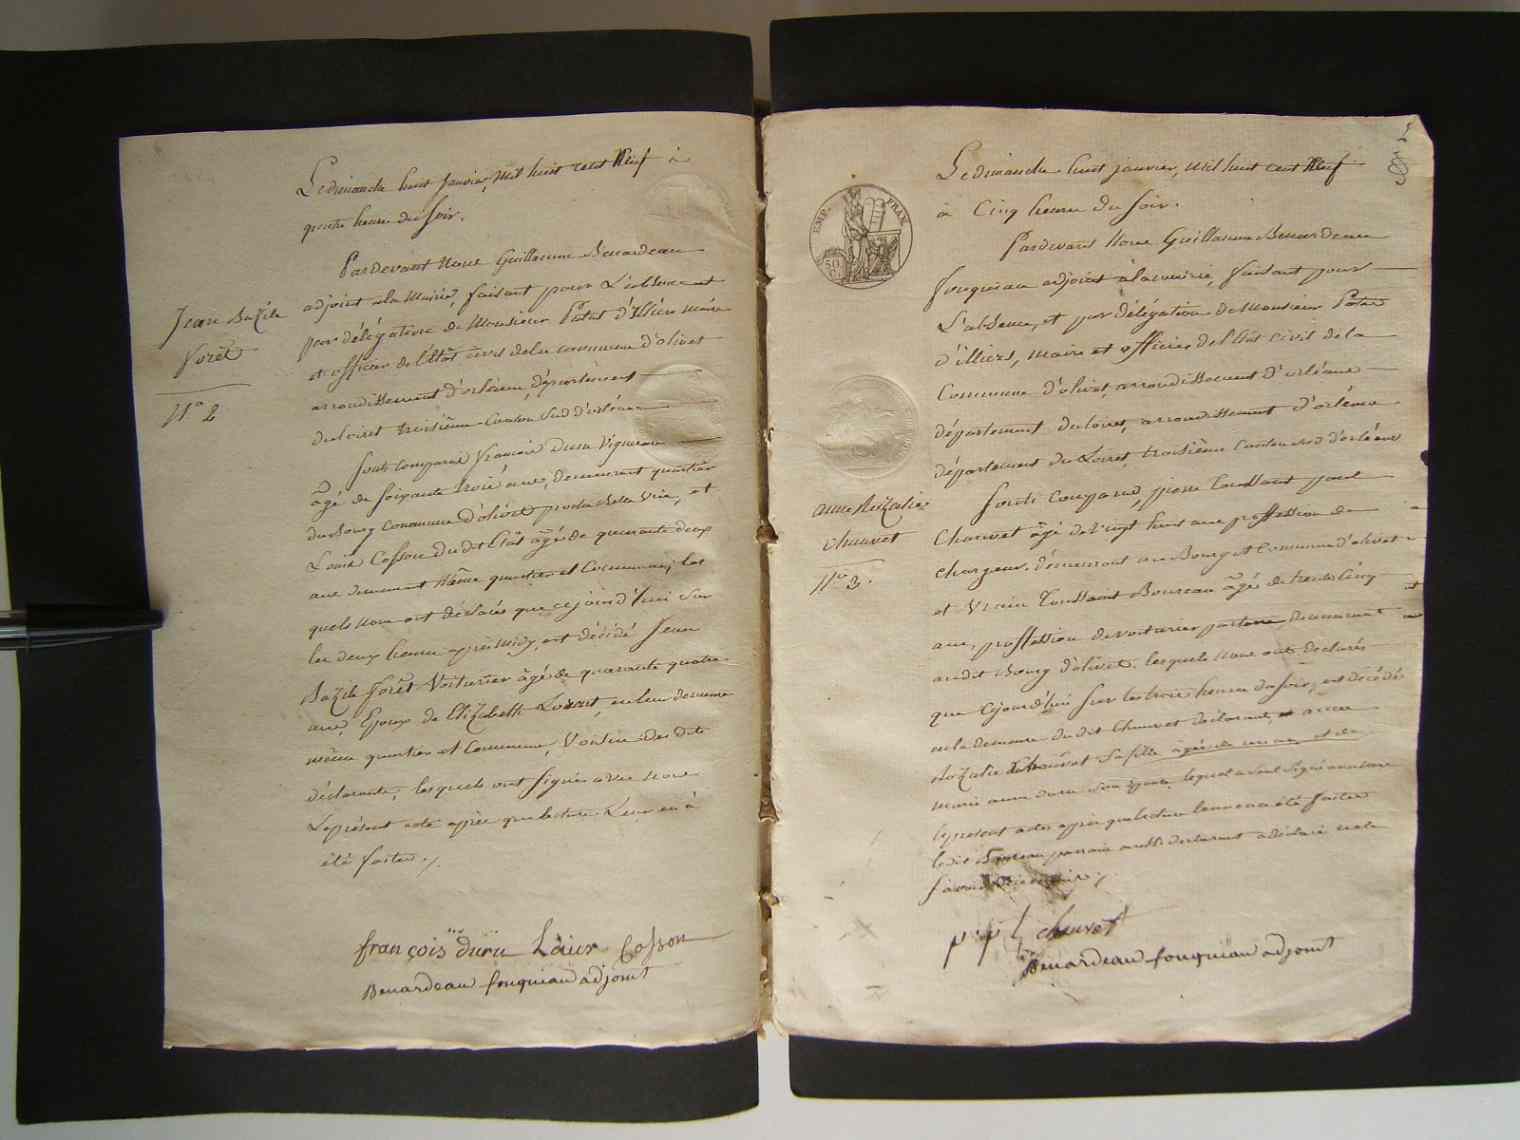 Le dimanche huit Janvier, Mil huit cent Neuf à
quatre heure du soir.
Pardevant Nous Guillaume Benardeau
adjoint à la Mairie, faisant pour L'absence et
par délégation de Monsieur Patas d'Illiers maire
et officier de l'état civil de la commune d'olivet
arrondissement d'orléans, département
du loiret troisième Canton Sud d'orléans
Sont Comparu françois Duru Vigneron
âgé de soixante trois ans, demeurant quartier
du bourg Commune d'olivet proche de la Ville, et
Louis Cosson du dit Etat âgé de quarante deux
ans demeurant même quartier et Commune; les
quels nous ont déclarés que cejourd'hui sur
les deux heures après midy, est décédé Jean
Bazile forêt Voiturier âgé de quarante quatre
ans, Epoux de Elizabeth, en leur demeure
même quartier et Commune, Voisin des dits
déclarants, lesquels ont signés avec nous
Le présent acte après que lecture Leur en à
été faites./.
Jean Bazile
forêt
N° 2
françois duru Louis Cosson
Benardeau fouqueau adjoint
EMP. FRAN.
50 C.
Le dimanche huit janvier, Mil huit cent Neuf
à Cinq heures du soir.
Pardevant Nous Guillaume Benardeau
fouqueau adjoint à la mairie, faisant pour
L'absence, et par délégation de Monsieur Patas
d'illiers, maire et officier de l'état civil de la
Commune d'olivet, arrondissement d'orléans
département du loiret, arrondissement d'orléans
département du Loiret, troisième Canton sud d'orléans
Sont Comparus, pierre Toussaint paul
Chauvet âgé de vingt huit ans proffession de
chargeur. demeurant au Bourg et Commune d'olivet
et Toussaint Boureau âgé de trente Cinq
ans, proffession de voiturier par terre Demeurant
audit Bourg d'olivet. lesquels nous ont Déclarés
que Cejourd'hui sur les trois heures du soir, est décédés
en la demeure du dit Chauvet déclarant, anne
Rozalie Chauvet sa fille âgée de un an et de
marie anne duru son épouse, lequel a seul signé avec nous
le présent actes après que lecture leur en a été faites
le dit Boureau aussi déclarant a déclaré ne le
savoir
anne Rozalie
Chauvet
N° 3.
p. t. p. chauvet
Benardeau fouqueau adjoint